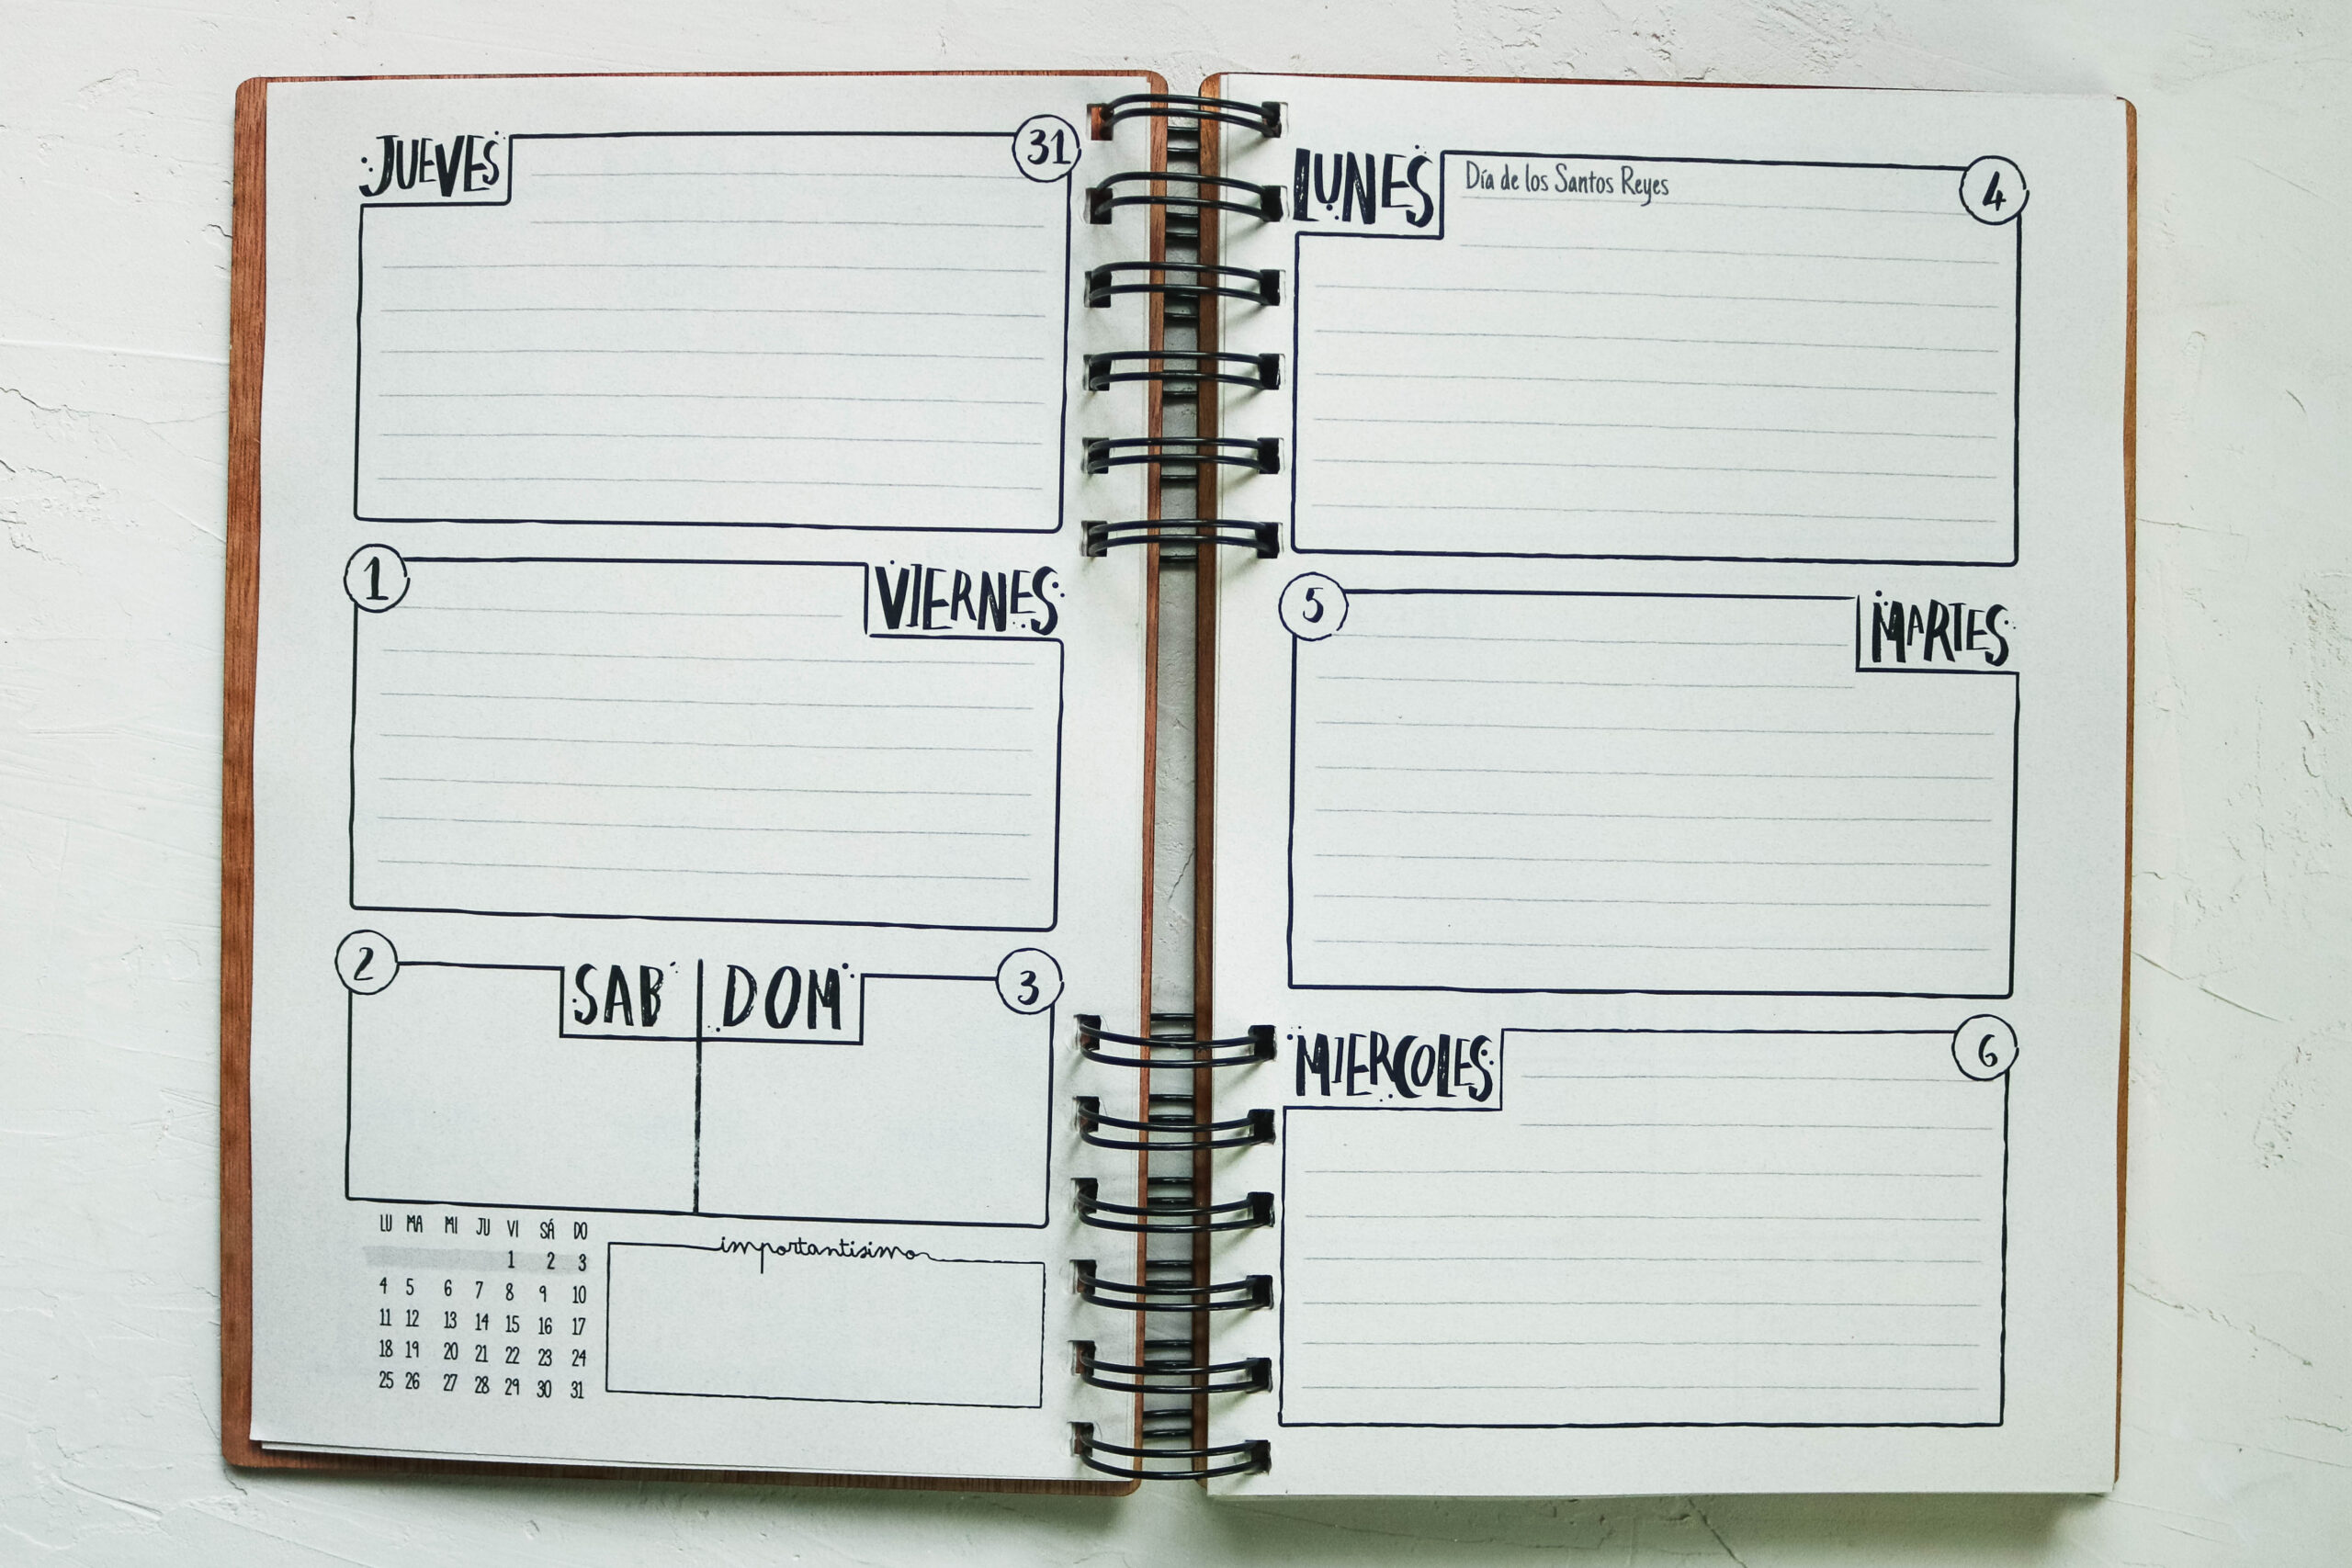 JUEVES 31
1 VIERNES
2 SAB DOM 3
LU MA MI JU VI SÁ DO
1 2 3
4 5 6 7 8 9 10
11 12 13 14 15 16 17
18 19 20 21 22 23 24
25 26 27 28 29 30 31
importantisimo
LUNES Día de los Santos Reyes 4
5 MARTES
MIERCOLES 6